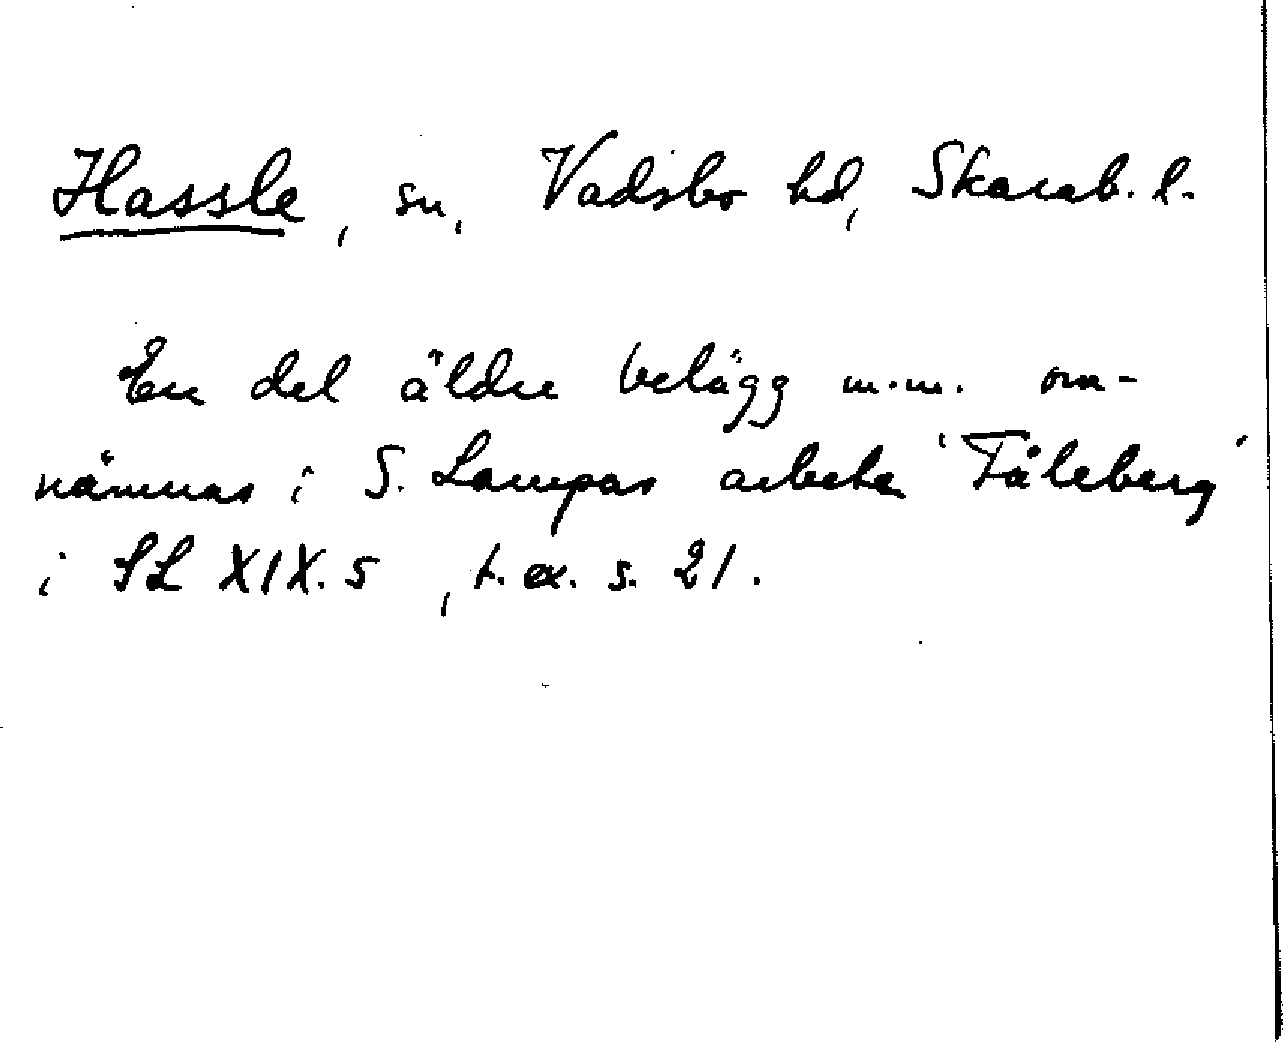 Hassle, sn, Vadsbo hd, Skarab. l.
En del äldre belägg m.m. om-
nämnas i S. Lampas arbete 'Fåleberg'
i SL XIX.5, t. ex. s. 21.